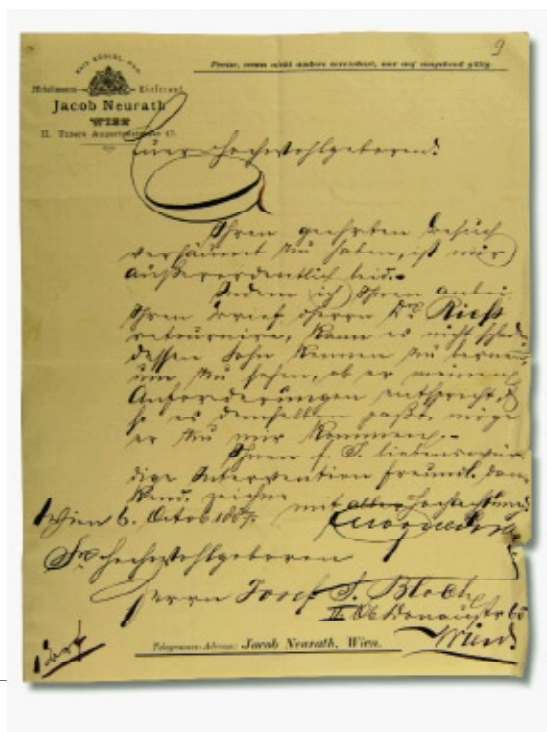 9
KAIS. KÖNIGL. HOF-
Möbelwaaren- Lieferant
Jacob Neurath
WIEN
II. Untere Augartenstrasse 47.
Preise, wenn nicht anders vereinbart, nur auf umgehend giltig.
Euer Hochwohlgeboren!
Ihren geehrten Besuch
versäumt zu haben, ist mir
außerordentlich leid.
Indem ich Ihnen anbei
Ihren Brief Herrn Dr. Rieß
retournire, kann es nicht schaden
dessen Sohn kennen zu lernen
um zu sehen, ob er meinen
Anforderungen entspricht, &
so es demselben paßt, möge
er zu mir kommen.
Ihnen f. I. liebenswür-
dige Intervention freundl. dan-
kend, zeichne
mit aller Hochachtung
Wien 6. Octob 1887.
Sr. Hochwohlgeboren
Herrn Josef S. Bloch
II. Ob Donaustr 65
Wien
Telegramm-Adresse: Jacob Neurath, Wien.